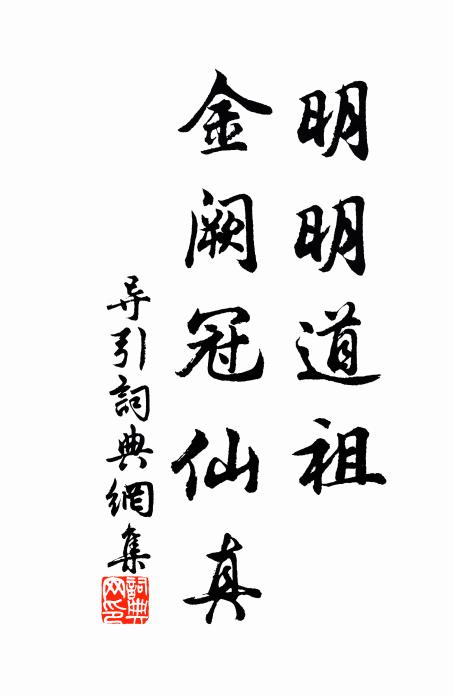 明明道祖
金阙冠仙真
导引詞典網集
詞典网印